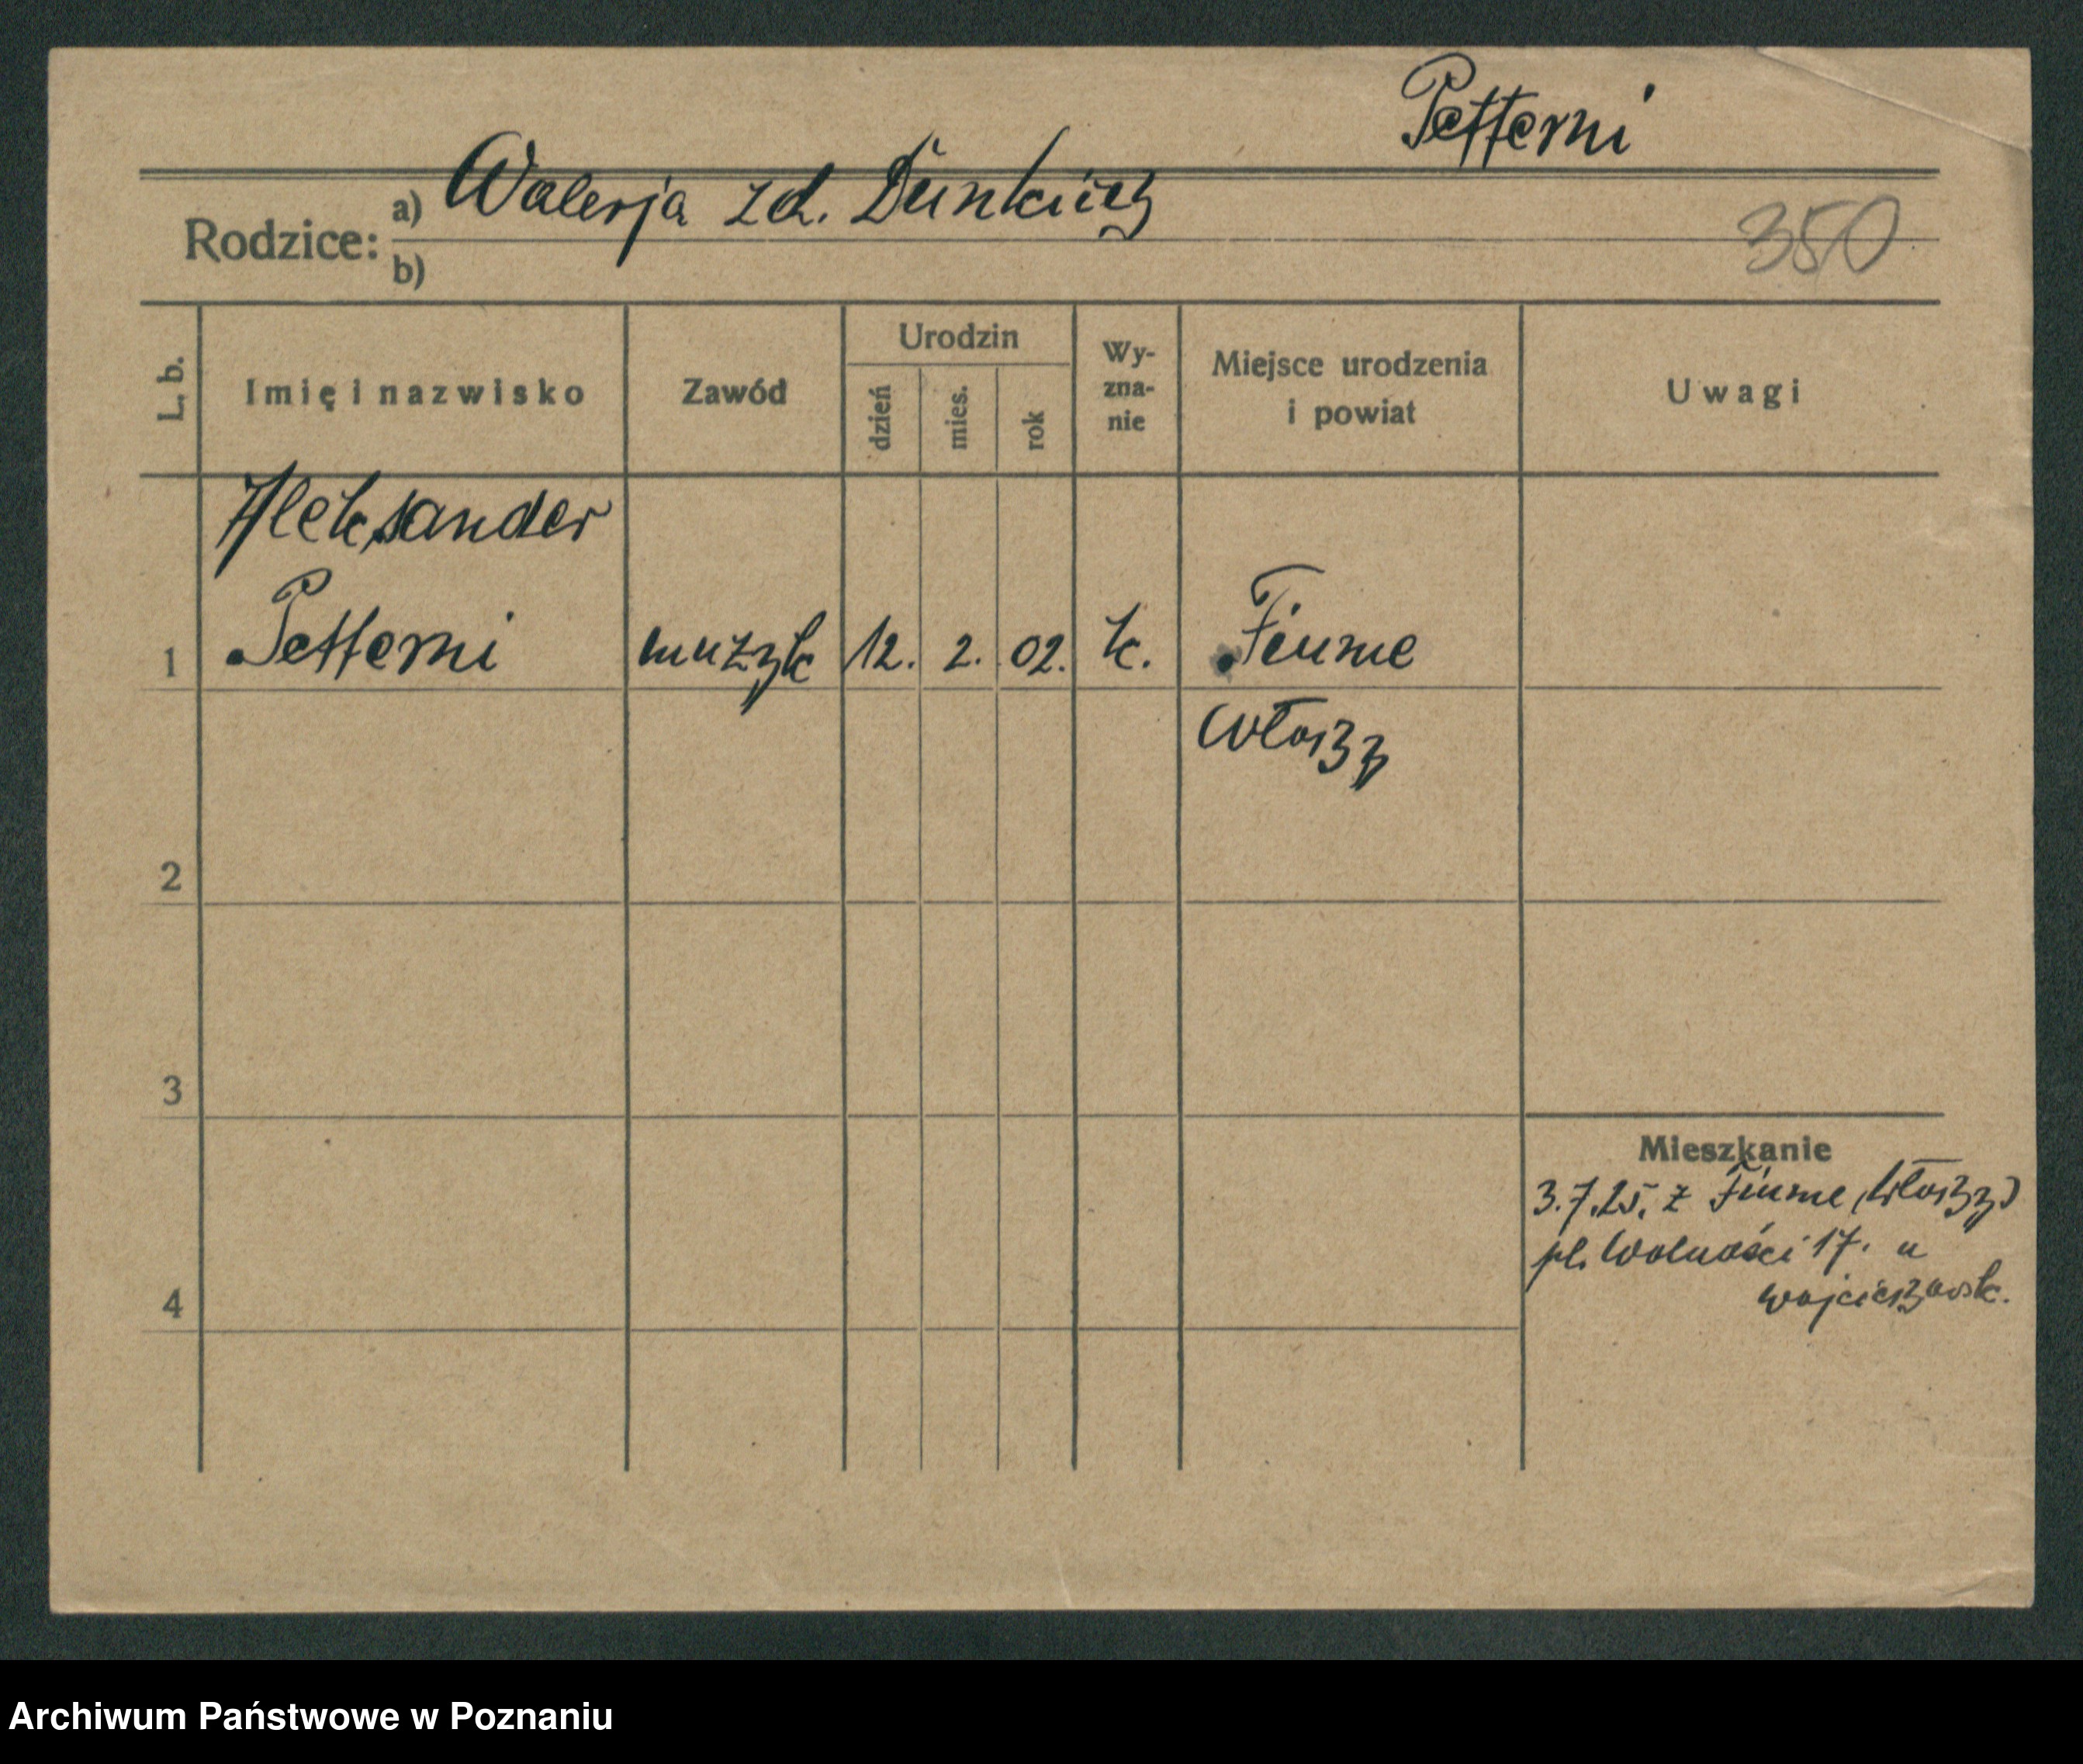 Petterni
Rodzice: a) Walerja zd. Dunkiicz
b)
350
L. b.
Imię i nazwisko
Zawód
Urodzin
dzień
mies.
rok
Wy-
zna-
nie
Miejsce urodzenia
i powiat
Uwagi
Aleksander
1 Petterni muzyk 12. 2. 02. k. Fiume
Włoszy
2
3
Mieszkanie
3.7.25. z Fiume (Włoszy)
pl. Wolności 17. u
4